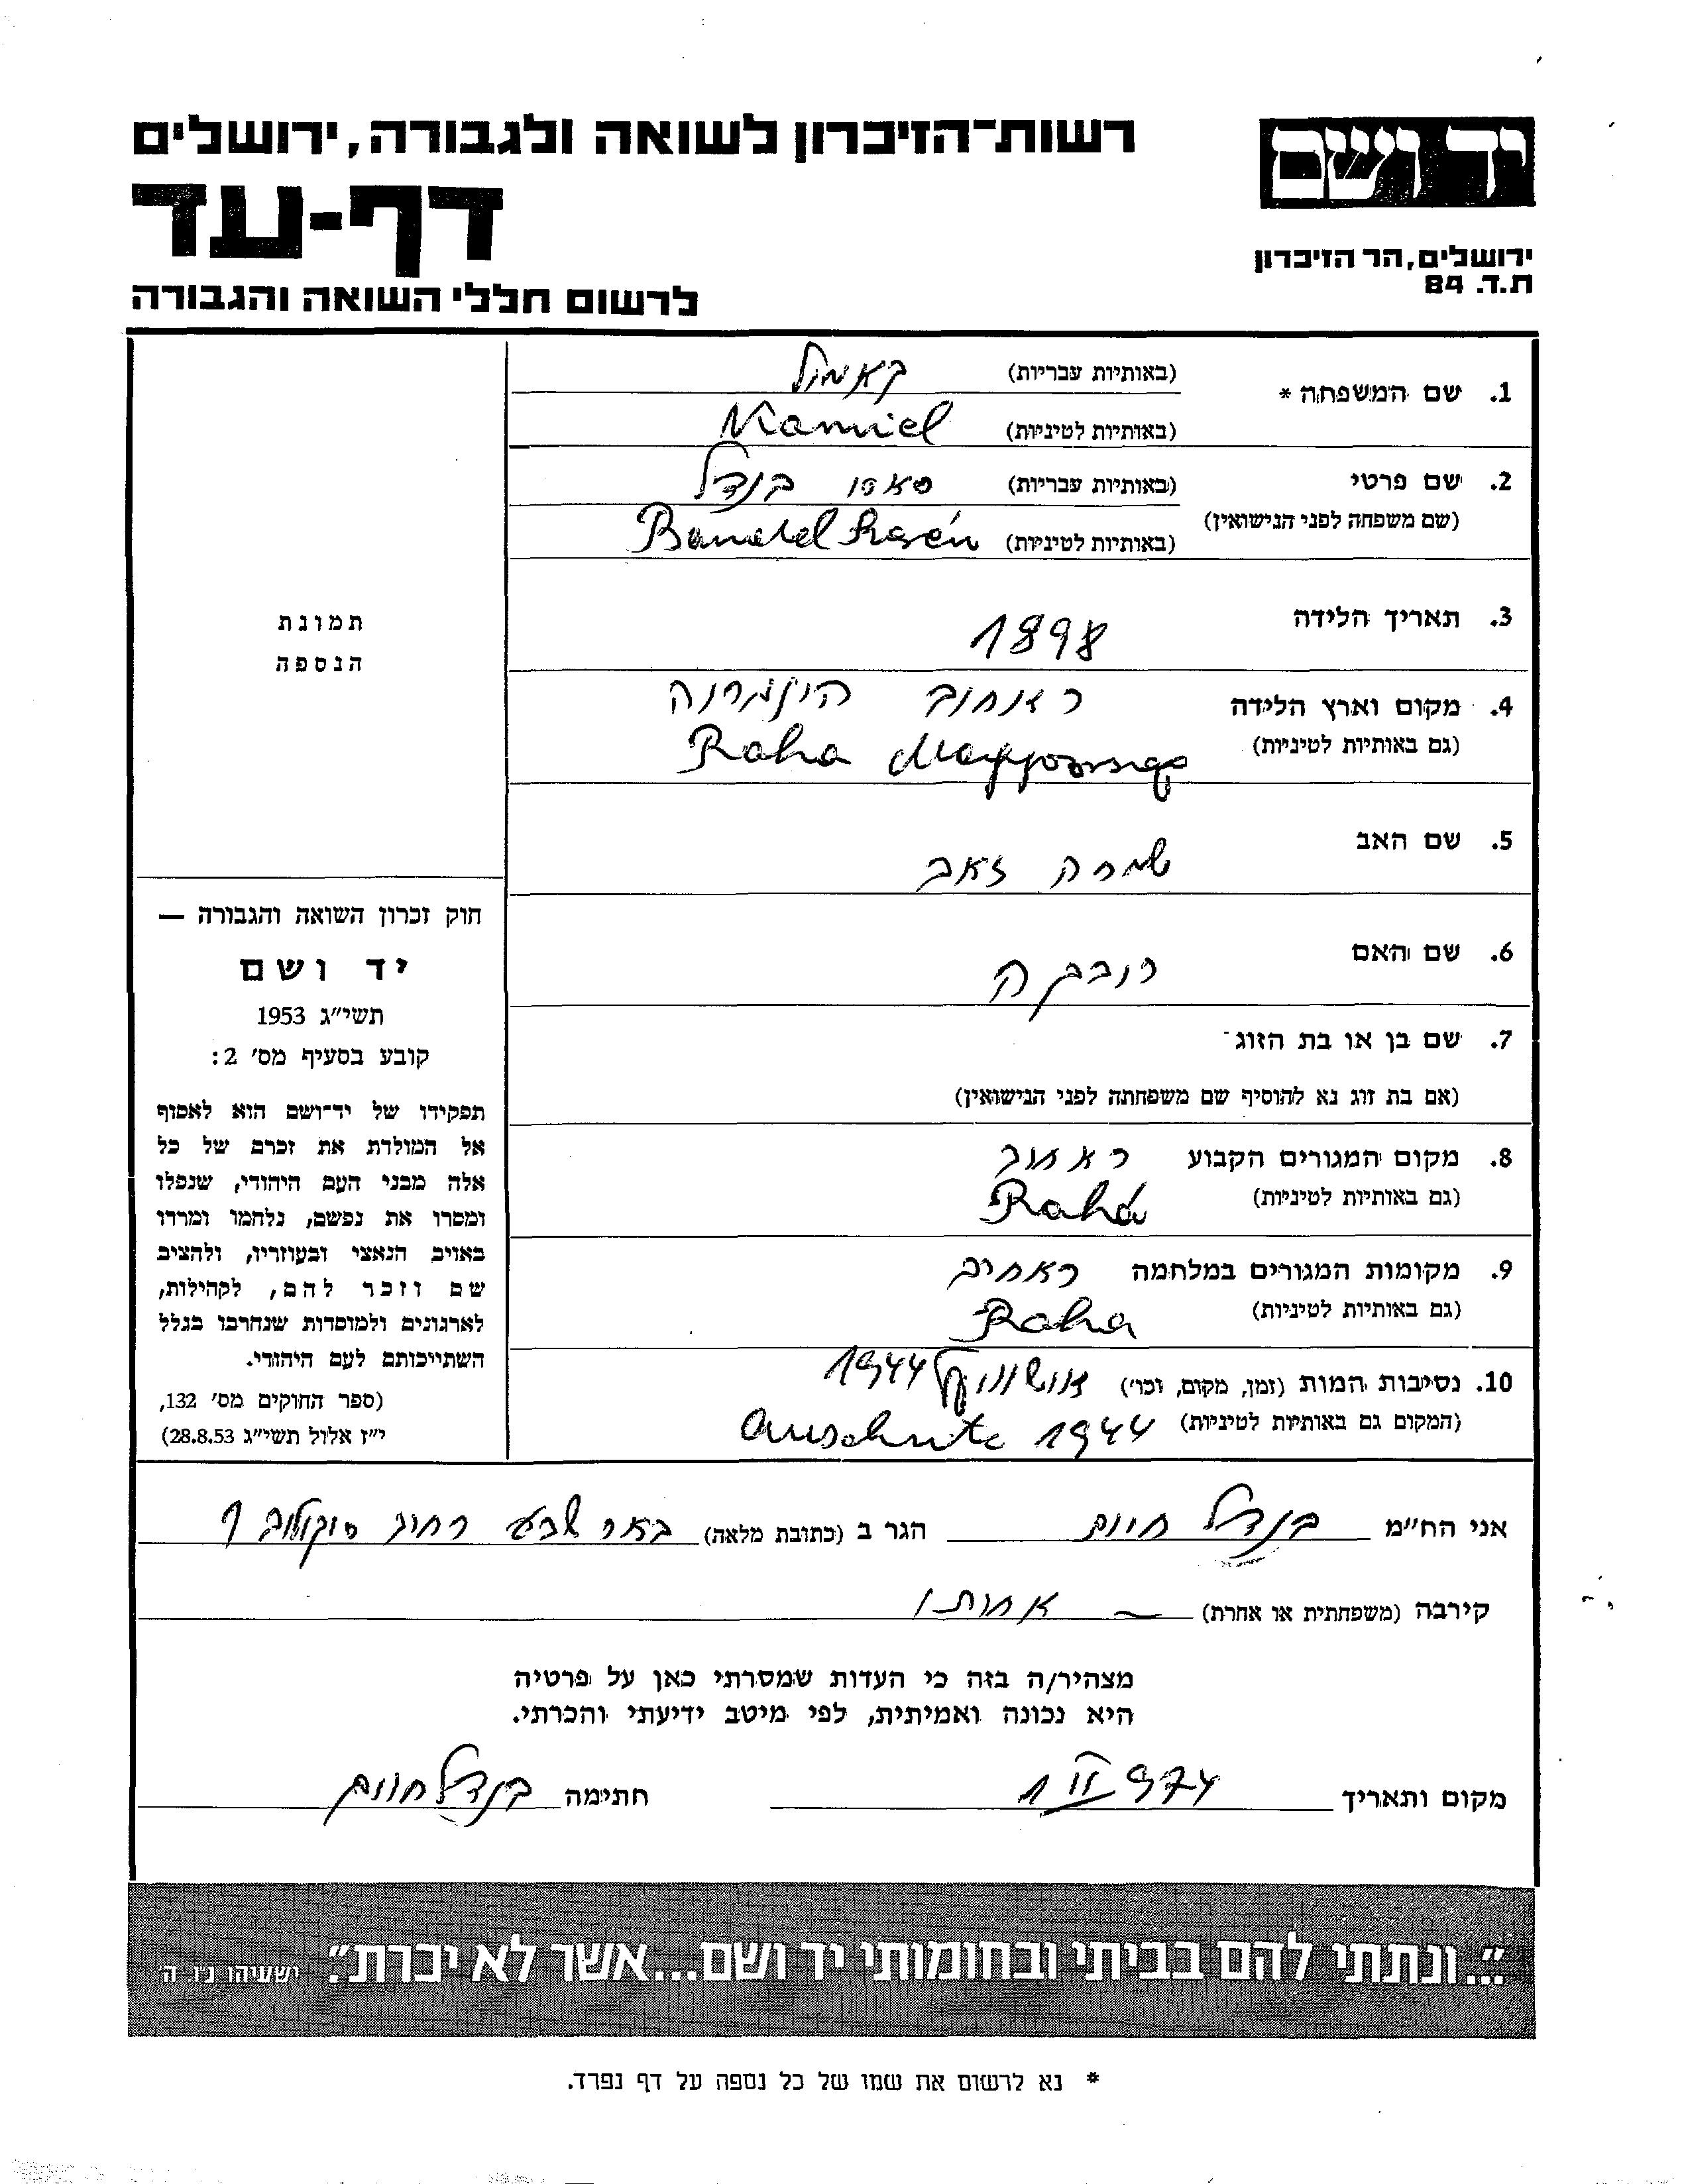 רשות־הזיכרון לשואה ולגבורה, ירושלים
דף-עד
לרשום חללי השואה והגבורה
יד ושם
ירושלים, הר הזיכרון
ת.ד. 84
1. שם המשפחה *
(באותיות עבריות)
(באותיות לטיניות)
2. שם פרטי
(באותיות עבריות) בנדל
(שם משפחה לפני הנישואין)
(באותיות לטיניות)
3. תאריך הלידה 1898
4. מקום וארץ הלידה
(גם באותיות לטיניות) Raha
5. שם האב שמחה זאב
6. שם האם
7. שם בן או בת הזוג
(אם בת זוג נא להוסיף שם משפחתה לפני הנישואין)
8. מקום המגורים הקבוע
(גם באותיות לטיניות) Raha
9. מקומות המגורים במלחמה
(גם באותיות לטיניות) Raha
10. נסיבות המות (זמן, מקום, וכו׳) 1944
(המקום גם באותיות לטיניות) 1944
תמונת
הנספה
חוק זכרון השואה והגבורה —
יד ושם
תשי״ג 1953
קובע בסעיף מס׳ 2:
תפקידו של יד־ושם הוא לאסוף
אל המולדת את זכרם של כל
אלה מבני העם היהודי, שנפלו
ומסרו את נפשם, נלחמו ומרדו
באויב הנאצי ובעוזריו, ולהציב
שם וזכר להם, לקהילות,
לארגונים ולמוסדות שנחרבו בגלל
השתייכותם לעם היהודי.
(ספר החוקים מס׳ 132,
י״ז אלול תשי״ג 28.8.53)
אני הח״מ בנדל חיים הגר ב (כתובת מלאה) באר שבע רחוב סוקולוב
קירבה (משפחתית או אחרת)
מצהיר/ה בזה כי העדות שמסרתי כאן על פרטיה
היא נכונה ואמיתית, לפי מיטב ידיעתי והכרתי.
מקום ותאריך 1 II 974 חתימה בנדל חיים
״...ונתתי להם בביתי ובחומותי יד ושם...אשר לא יכרת״. ישעיהו נ״ו, ה׳
* נא לרשום את שמו של כל נספה על דף נפרד.